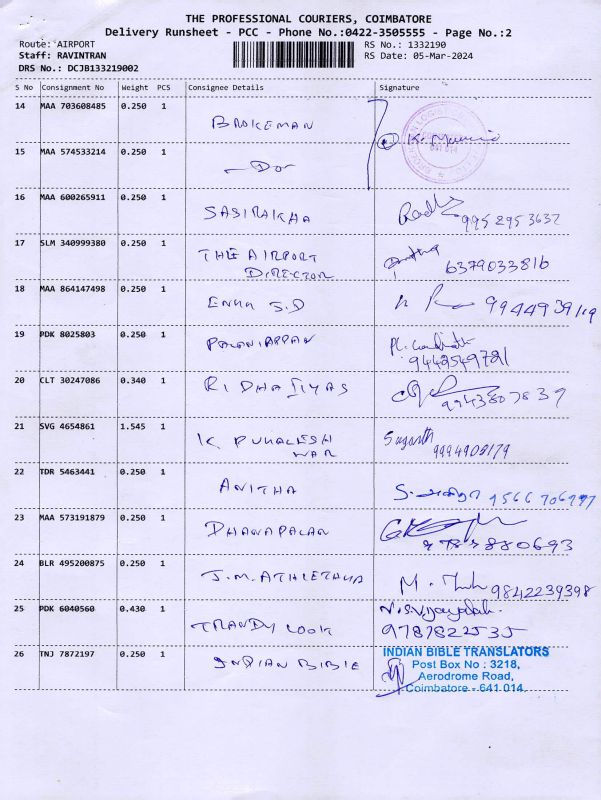 THE PROFESSIONAL COURIERS, COIMBATORE
Delivery Runsheet - PCC - Phone No.:0422-3505555 - Page No.:2
Route: AIRPORT RS No.: 1332190
Staff: RAVINTRAN RS Date: 05-Mar-2024
DRS No.: DCJB133219002
S No Consignment No Weight PCS Consignee Details Signature
14 MAA 703608485 0.250 1
BROKEMAN
15 MAA 574533214 0.250 1
Do
641 014
16 MAA 600265911 0.250 1
SASIRAKHA 9952953632
17 SLM 340999380 0.250 1
THE AIRPORT
DIRECTOR 6379033816
18 MAA 864147498 0.250 1
S.D
19 PDK 8025803 0.250 1
PALANIAPPAN
9442549721
20 CLT 30247086 0.340 1
RIDHA JIYAS 9943807839
21 SVG 4654861 1.545 1
K. PUKALESH
WAR
Suganth
9994905179
22 TDR 5463441 0.250 1
ANITHA
23 MAA 573191879 0.250 1
DHANAPALAN
24 BLR 495200875 0.250 1
J.M. 9842239398
25 PDK 6040560 0.430 1
TRANDY LOOK
9787822535
26 TNJ 7872197 0.250 1
INDIAN BIBLE
INDIAN BIBLE TRANSLATORS
Post Box No : 3218,
Aerodrome Road,
Coimbatore - 641 014.